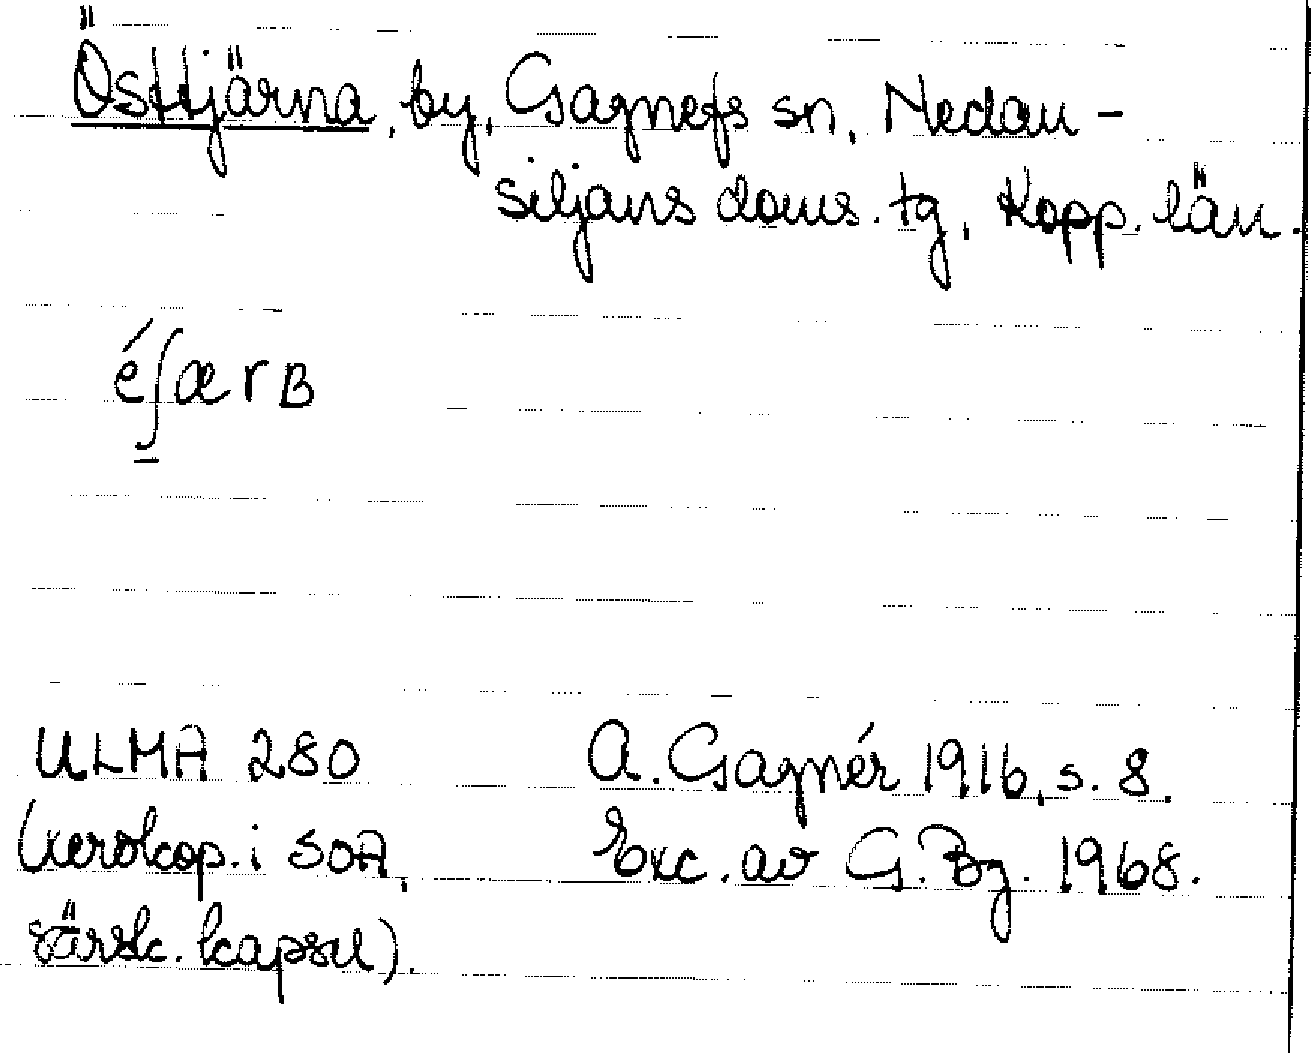 Östtjärna, by, Gagnefs sn, Nedan-
siljans doms. tg, Kopp. län.
é∫ærB
ULMA 280
(xerokop. i SOA,
särsk. kapsel).
A. Gagnér 1916, s. 8.
Exc. av G. Bg. 1968.